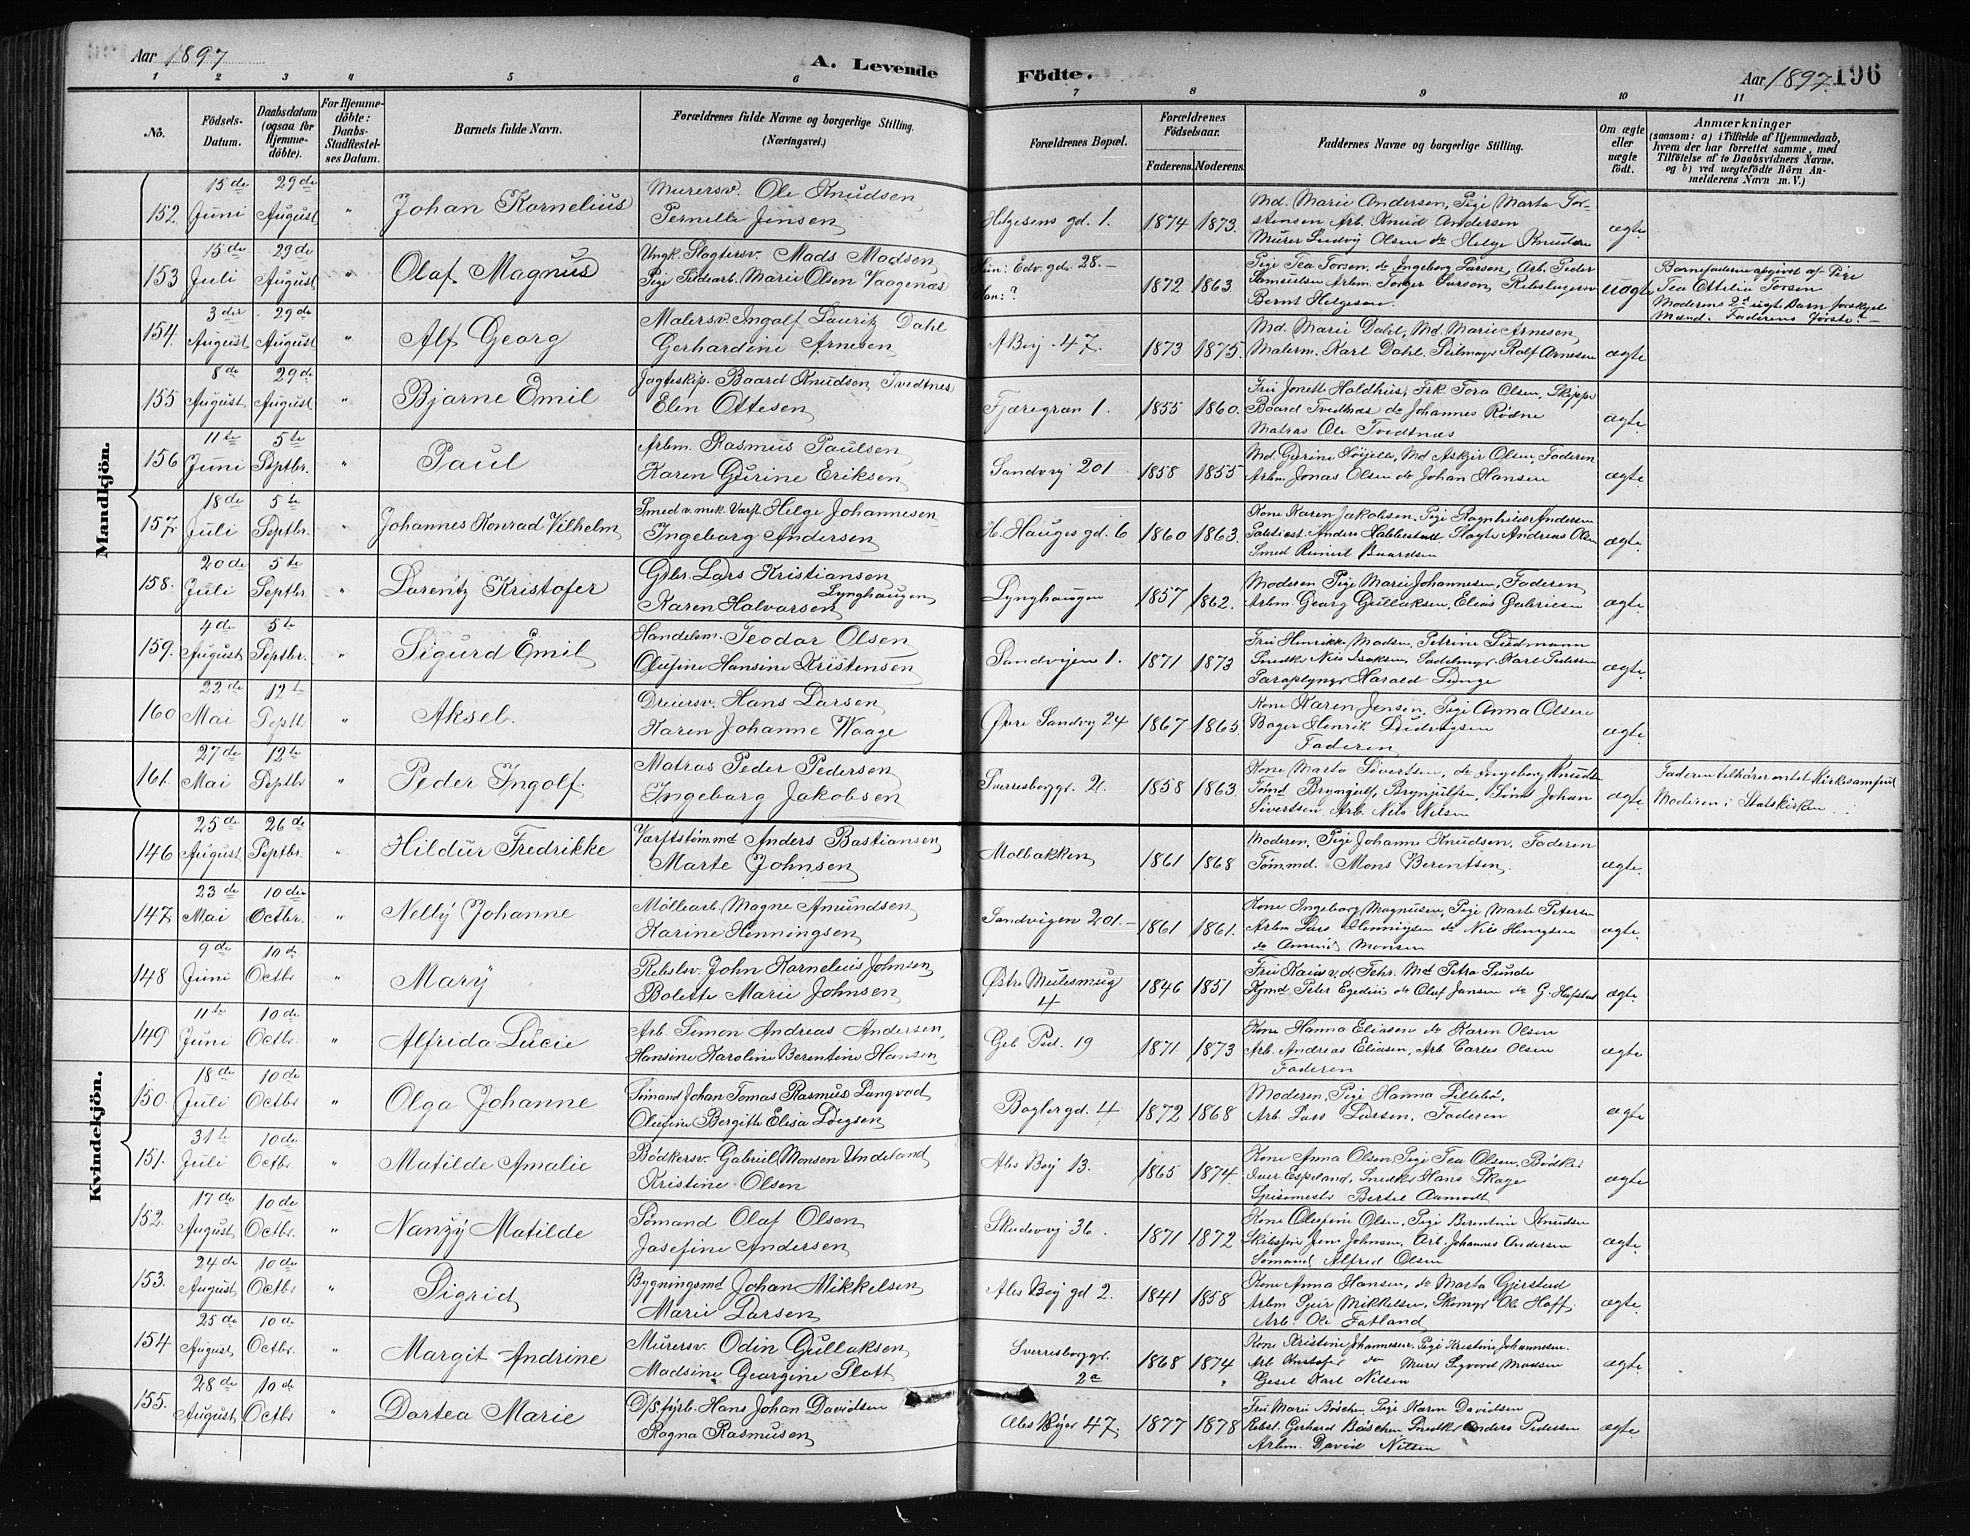 Aar 1897
A. Levende
Födte.
Aar 1897. 196
1 2 3 4 5 6 7 8 9 10 11
No.
Födsels-Datum.
Daabsdatum (ogsaa for Hjemmedöbte).
For Hjemmedöbte: Daabs-Stadfestelses Datum.
Barnets fulde Navn.
Forældrenes fulde Navne og borgerlige Stilling. (Næringsvei.)
Forældrenes Bopæl.
Forældrenes Födselsaar.
Faderens. Moderens.
Faddernes Navne og borgerlige Stilling.
Om ægte eller uægte födt.
Anmærkninger
(saasom: a) i Tilfælde af Hjemmedaab, hvem der har forrettet samme, med Tilföielse af to Daabsvidners Navne. og b) ved uægtefödte Börn Anmelderens Navn m. V.)
Mandkjön.
152. 15de Juni 29de August " Johan Kornelius Murersv. Ole Knudsen Pernille Jensen Helgesens gd. 1. 1874 1873. Md. Marie Andersen, Pige Marta Torstensen Arb. Knud Andersen Murer Ludvig Olsen do Helge Knudsen ægte
153 15de Juli 29de August " Olaf Magnus Ungk. Slagtersv. Mads Madsen Pige Marie Olsen Vaagenæs Edv. gd. 28. Han: ? 1872 1863 Pige Tea Torsen, do Ingeborg Larsen, Arb. Peder Samuelsen Arbm. Torger Larson, Rebslagersv Bernt Helgesen uægte Barnefaderen opgivet af Pige Tea Ottilia Torsen Moderens 2d uægte Barn, forskjel. Mænd. Faderens förste?
154. 3die August 29de August " Alf Georg Malersv. Ingolf Lauritz Dahl Gerhardine Arnesen 47. 1873 1875. Md. Marie Dahl, Md. Marie Arnesen, Malerm. Karl Dahl. Seilmager Rolf Arnesen ægte
155 8de August 29de August " Bjarne Emil Jagteskip. Baard Knudsen Tvedtnes Elen Ottesen Fjæregran 1. 1855 1860. Fru Jonette Haldhus, Frk. Tora Olsen, Skipper Baard Tvedtnæs do Johannes Rødne Matros Ole Tvedtnæs ægte
156 11te Juni 5te Septbr. " Paul Arbm. Rasmus Paulsen Karen Gurine Eriksen Sandvig 201 1858 1855 Md. Gurine Høijelle, Md Askjer Olsen, Faderen Arbm. Jonas Olsen do Johan Hansen ægte
157. 18de Juli 5te Septbr. " Johannes Konrad Vilhelm Smed v. mek. Værft. Helge Johannesen Ingeborg Andersen H. Hauges gd. 6 1860 1863. Kone Karen Jakobsen, Pige Ragnhild Andersen Anders Habbestad Slagter Andreas Olsen Smed Reinert Baardsen ægte
158. 20de Juli 5te Septbr. " Lorentz Kristofer Grbr. Lars Kristiansen Lynghaugen Karen Halvorsen Lynghaugen 1857 1862. Moderen Pige Marie Johannesen, Faderen Arbm. Georg Gullaksen, Elias Gabrielsen ægte
159. 4de August 5te Septbr. " Sigurd Emil Handelsm. Teodor Olsen Olufine Hansine Kristensen Sandvigen 1. 1871 1873 Fru Henrikke Madsen, Petrine Snedker Nils Isaksen, Sadelmager Karl Pedersen Harald Lunge ægte
160 22de Mai 12te Septbr. " Aksel. Dreiersv. Hans Larsen Karen Johanne Waage Øvre Sandvig 24 1867 1865 Kone Karen Jensen, Pige Anna Olsen Bager Henrik Didriksen Faderen ægte
161. 27de Mai 12te Septbr " Peder Ingolf. Matros Peder Pedersen Ingeborg Jakobsen Sverresborggr. 2. 1858 1863. Kone Marta Sivertsen, do Ingeborg Knudsen Tømd Brynjulf Brynjulfsen, Johan Sivertsen Arb. Nils Nilsen ægte Faderen tilhører intet Kirkesamfund Moderen i Statskirken
Kvindekjön.
146 25de August 26de Septbr. " Hildur Fredrikke Værftstømmd Anders Bastiansen Marte Johnsen Molbakken 1861 1868 Moderen, Pige Johanne Knudsen, Faderen Tømmd. Mons Berentsen. ægte
147. 23de Mai 10de Octbr. " Nelly Johanne Møllearb. Magne Amundsen Karine Henningsen Sandvigen 201. 1861 1861. Kone Ingeborg Magnusen, Pige Marte Petersen Arbm Lars Henningsen do Nils Hengsen do Amund Monsen ægte
148 9de Juni 10de Octbr. " Mary Rebslsv. John Kornelius Johnsen Bolette Marie Johnsen Østre Mulesmug 4 1846 1851 Fru v. d. Fehr. Md Petra Lunde Kjmd Peter Egedius do Olaf Jansen do G. Hafstad ægte
149 11te Juni 10de Octbr. " Alfrida Lucie Arb. Simon Andreas Andersen Hansine Karoline Berentine Hansen 19 1871 1873 Kone Hanna Eliasen do Karen Olsen Arb. Andreas Eliasen, Arb. Carles Olsen Faderen ægte
150. 18de Juli 10de Octbr " Olga Johanne Sömand Johan Tomas Rasmus Langvad Olufine Bergitte Elisa Loegsen 4 1872 1868 Moderen, Pige Hanna Lillebø, Arb. Lars Larsen, Faderen ægte
151. 31te Juli 10de Octbr. " Matilde Amalie Bødkersv. Gabriel Monsen Undeland Kristine Olsen 13. 1865 1874. Kone Anna Olsen, Pige Tea Olsen, Bødker Iver Espeland, Snedker Hans Skage Spisemester Bertel Aamodt ægte
152. 17de August 10de Octbr. " Nanzy Matilde Sømand Olaf Olsen Josefine Andersen Skudevig 36. 1871 1872 Kone Olefine Olsen, Pige Berentine Knudsen Skibsfører Jens Johnsen, Arb. Johannes Andersen Sømand Alfred Olsen ægte
153. 24de August 10de Octbr. " Sigrid Bygningsmd Johan Mikkelsen Marie Larsen gd 2. 1841 1858 Kone Anna Hansen, do Marta Gjerstad Arbm Sjur Mikkelsen, Skomgr Ole Hoff Arb. Ole Fatland ægte
154. 25de August 10de Octbr. " Margit Andrine Murersv. Odin Gullaksen Madsine Georgine Plott Sverresborggr. 2a 1868 1874 Kone Kristine Johannesen, Pige Kristine Johannesen. Arb Kristofer do Murer Syvord Madsen Gesel Karl Nilsen ægte
155. 28de August 10de Octbr " Dortea Marie D/S. fyrb. Hans Johan Davidsen Ragna Rasmusen 47. 1877 1878 Fru Marie Bøschen, Pige Karen Davidsen Rebsl. Gerhard Bøschen Snedker Anders Pedersen Arbm. David Nilsen ægte